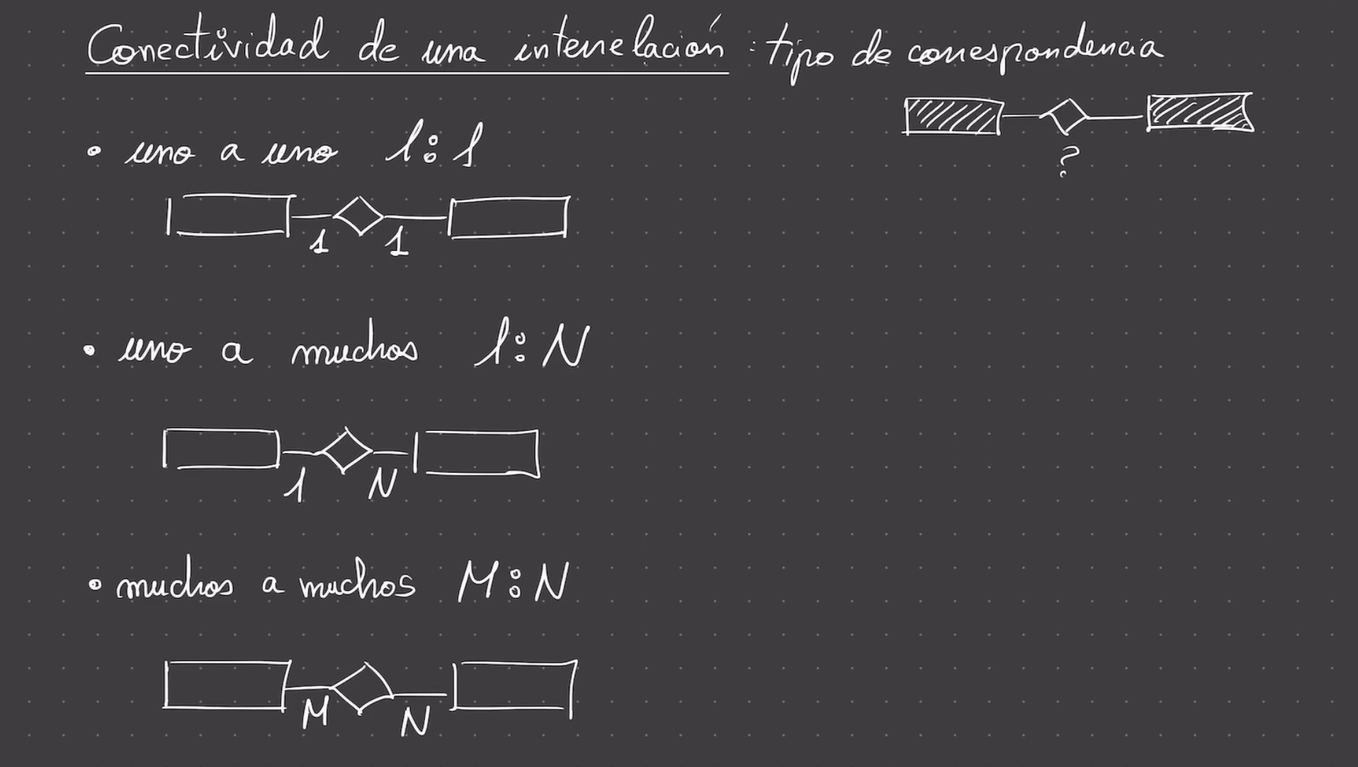 Conectividad de una interrelación : tipo de correspondencia
?
• uno a uno 1:1
1 1
• uno a muchos 1:N
1 N
• muchos a muchos M:N
M N